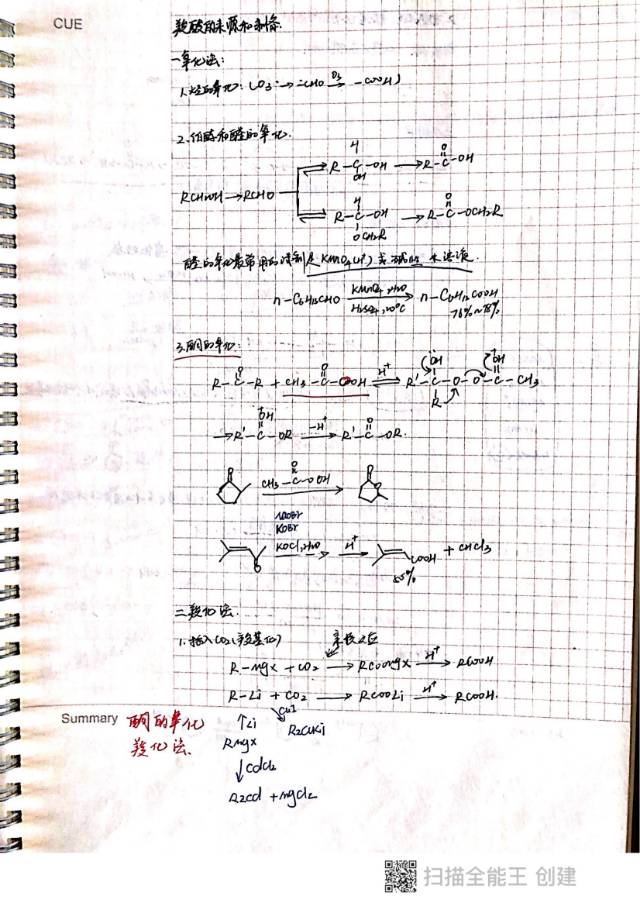 CUE
羧酸的来源和制备
一.氧化法:
1.烃的氧化:
2.伯醇和醛的氧化.
H O
R-C-OH → R-C-OH
OH
RCH2OH → RCHO
H O
R-C-OH → R-C-OCH2R
OCH2R
醛的氧化最常用的试剂是KMnO4 水溶液.
n-C6H13CHO KMnO4, H2O → n-C6H13COOH
H2SO4, 20°C 76%~78%
3.酮的氧化:
R-C-R + CH3-C-OOH H+ ⇌ R'-C-O-O-C-CH3
R
→ R'-C-OR -H+ → R'-C-OR.
CH3-C-OOH
NaOBr
KOBr
KOCl, H2O → H+ → COOH + CHCl3
85%
二.羧化法.
1.插入CO2(羧基化)
R-MgX + CO2 → RCOOMgX H+ → RCOOH
R-Li + CO2 → RCOOLi H+ → RCOOH.
CuI
Summary 酮的氧化
↑Li R2CuLi
羧化法.
RMgX
↓CdCl2
R2Cd + MgCl2
扫描全能王 创建